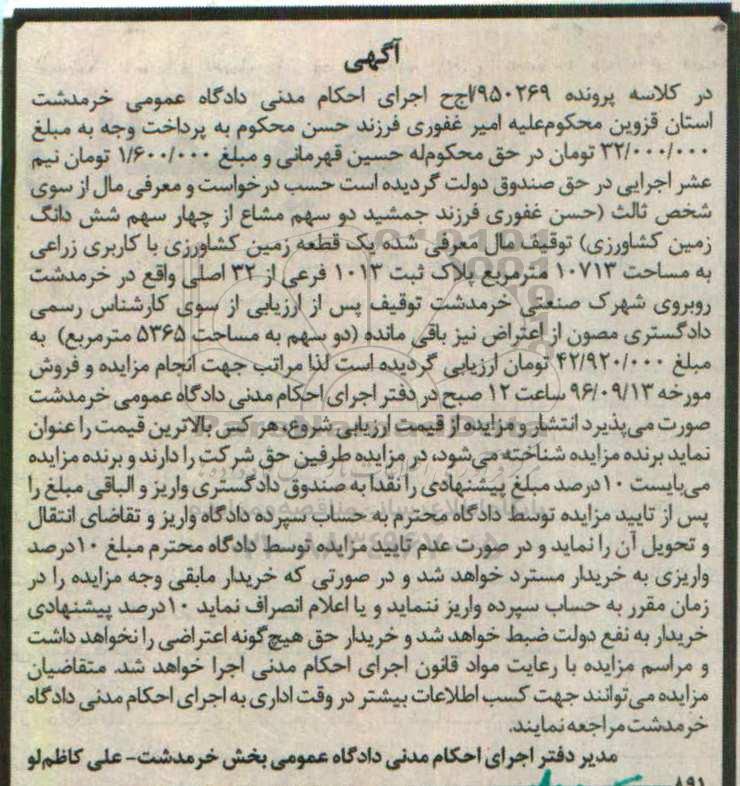 آگهی
در کلاسه پرونده ۹۵۰۲۶۹/اج‌ح اجرای احکام مدنی دادگاه عمومی خرمدشت
استان قزوین محکوم‌علیه امیر غفوری فرزند حسن محکوم به پرداخت وجه به مبلغ
۳۲/۰۰۰/۰۰۰ تومان در حق محکوم‌له حسین قهرمانی و مبلغ ۱/۶۰۰/۰۰۰ تومان نیم
عشر اجرایی در حق صندوق دولت گردیده است حسب درخواست و معرفی مال از سوی
شخص ثالث (حسن غفوری فرزند جمشید دو سهم مشاع از چهار سهم شش دانگ
زمین کشاورزی) توقیف مال معرفی شده یک قطعه زمین کشاورزی با کاربری زراعی
به مساحت ۱۰۷۱۳ مترمربع پلاک ثبت ۱۰۱۳ فرعی از ۳۲ اصلی واقع در خرمدشت
روبروی شهرک صنعتی خرمدشت توقیف پس از ارزیابی از سوی کارشناس رسمی
دادگستری مصون از اعتراض نیز باقی مانده (دو سهم به مساحت ۵۳۶۵ مترمربع) به
مبلغ ۴۲/۹۲۰/۰۰۰ تومان ارزیابی گردیده است لذا مراتب جهت انجام مزایده و فروش
مورخه ۹۶/۰۹/۱۳ ساعت ۱۲ صبح در دفتر اجرای احکام مدنی دادگاه عمومی خرمدشت
صورت می‌پذیرد انتشار و مزایده از قیمت ارزیابی شروع، هر کس بالاترین قیمت را عنوان
نماید برنده مزایده شناخته می‌شود، در مزایده طرفین حق شرکت را دارند و برنده مزایده
می‌بایست ۱۰درصد مبلغ پیشنهادی را نقدا به صندوق دادگستری واریز و الباقی مبلغ را
پس از تایید مزایده توسط دادگاه محترم به حساب سپرده دادگاه واریز و تقاضای انتقال
و تحویل آن را نماید و در صورت عدم تایید مزایده توسط دادگاه محترم مبلغ ۱۰درصد
واریزی به خریدار مسترد خواهد شد و در صورتی که خریدار مابقی وجه مزایده را در
زمان مقرر به حساب سپرده واریز ننماید و یا اعلام انصراف نماید ۱۰درصد پیشنهادی
خریدار به نفع دولت ضبط خواهد شد و خریدار حق هیچ‌گونه اعتراضی را نخواهد داشت
و مراسم مزایده با رعایت مواد قانون اجرای احکام مدنی اجرا خواهد شد. متقاضیان
مزایده می‌توانند جهت کسب اطلاعات بیشتر در وقت اداری به اجرای احکام مدنی دادگاه
خرمدشت مراجعه نمایند.
مدیر دفتر اجرای احکام مدنی دادگاه عمومی بخش خرمدشت- علی کاظم‌لو
۸۹۱